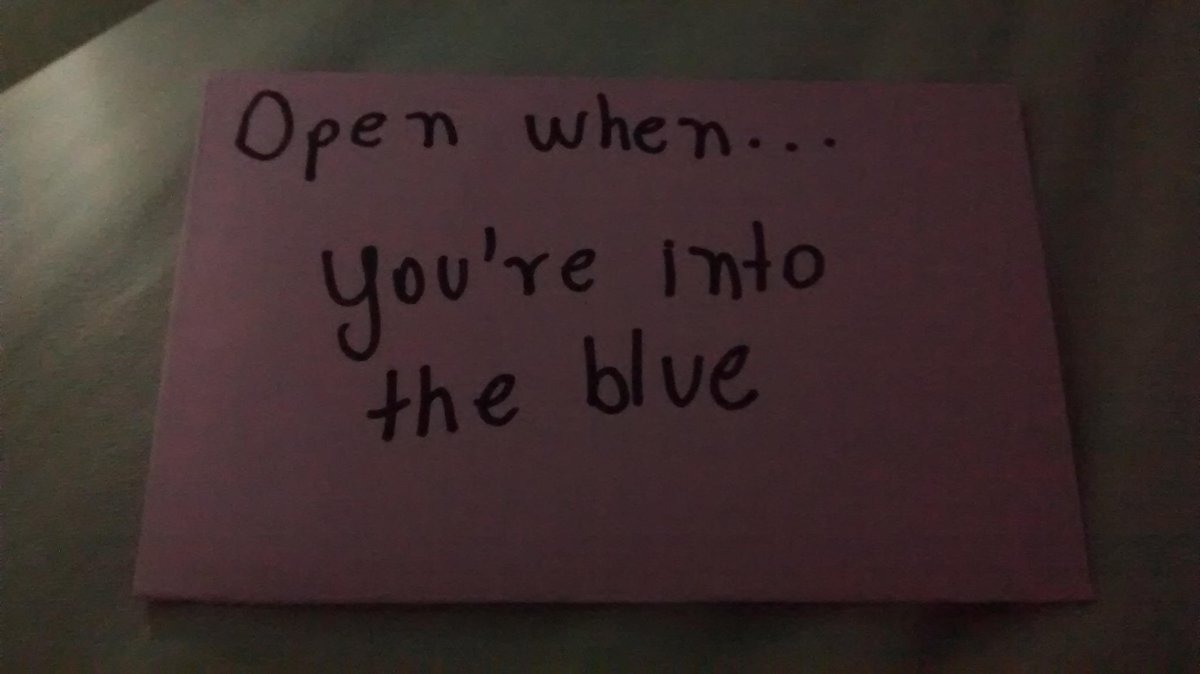 Open when...
you're into
the blue